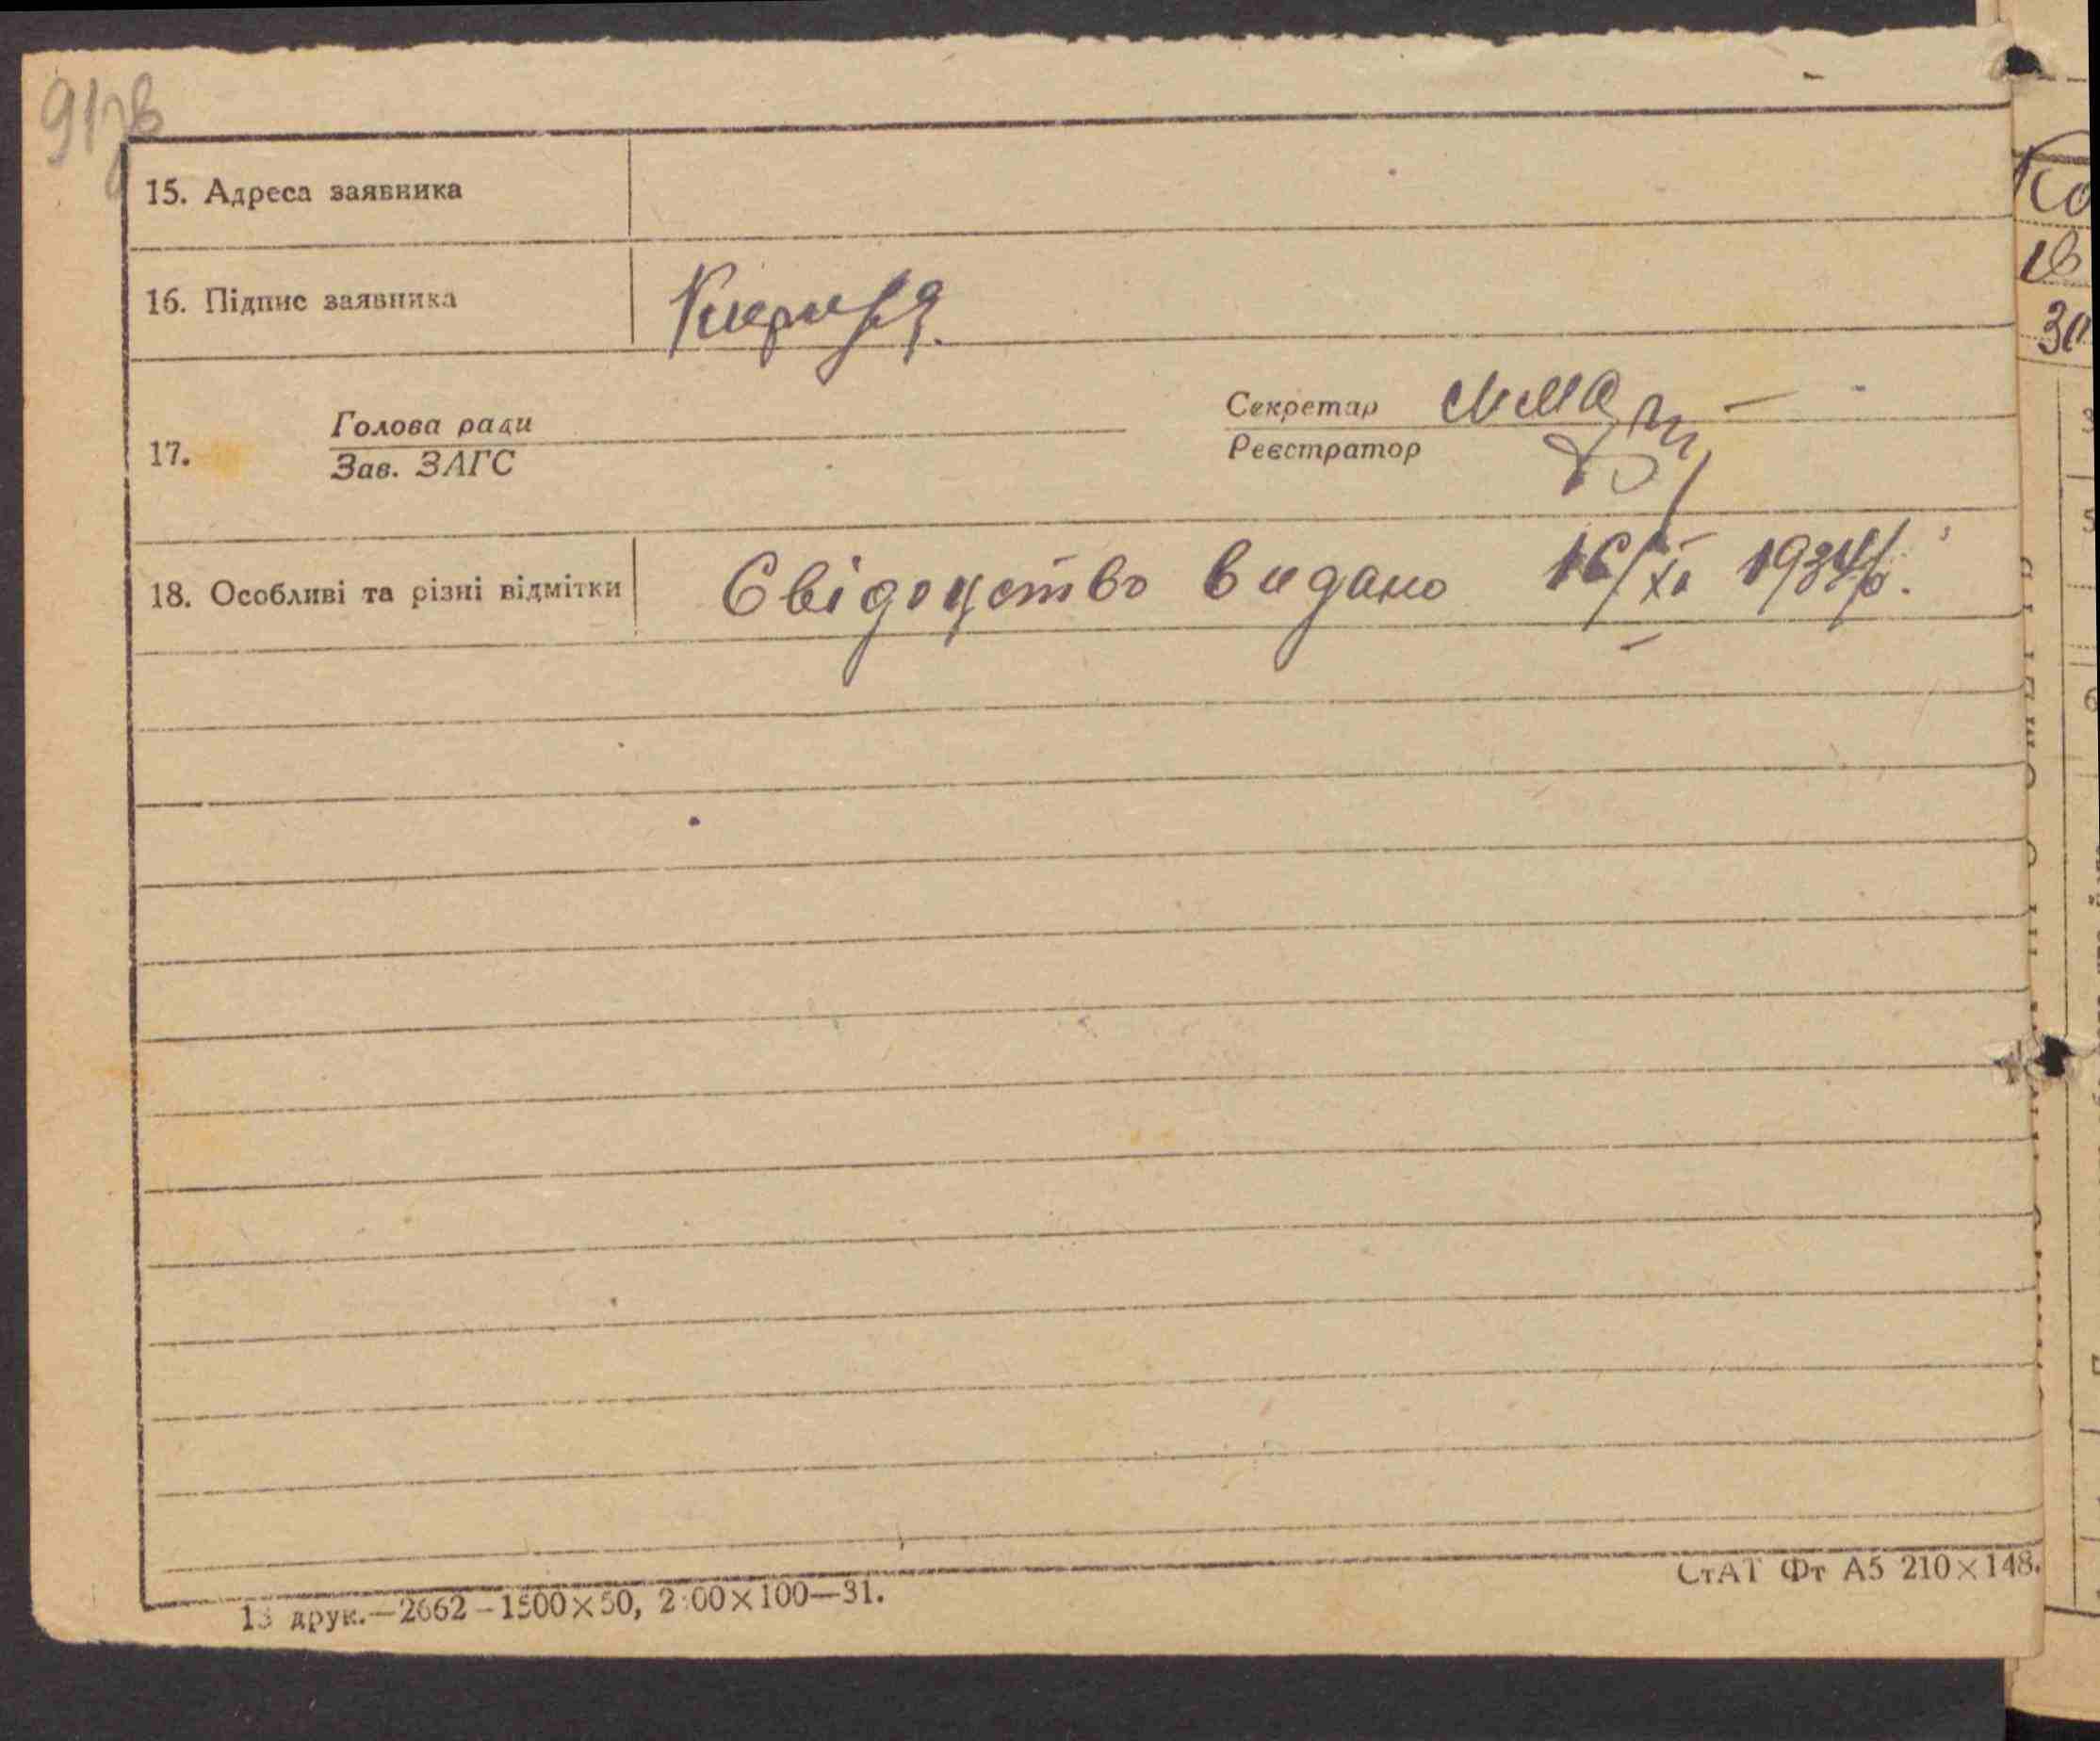 91зв
15. Адреса заявника
16. Підпис заявника
17.
Голова ради
Зав. ЗАГС
Секретар
Реєстратор
18. Особливі та різні відмітки
Свідоцтво видано 16/XI 1934 р.
13 друк.—2662—1500×50, 2 00×100—31.
СтАТ Фт А5 210×148.